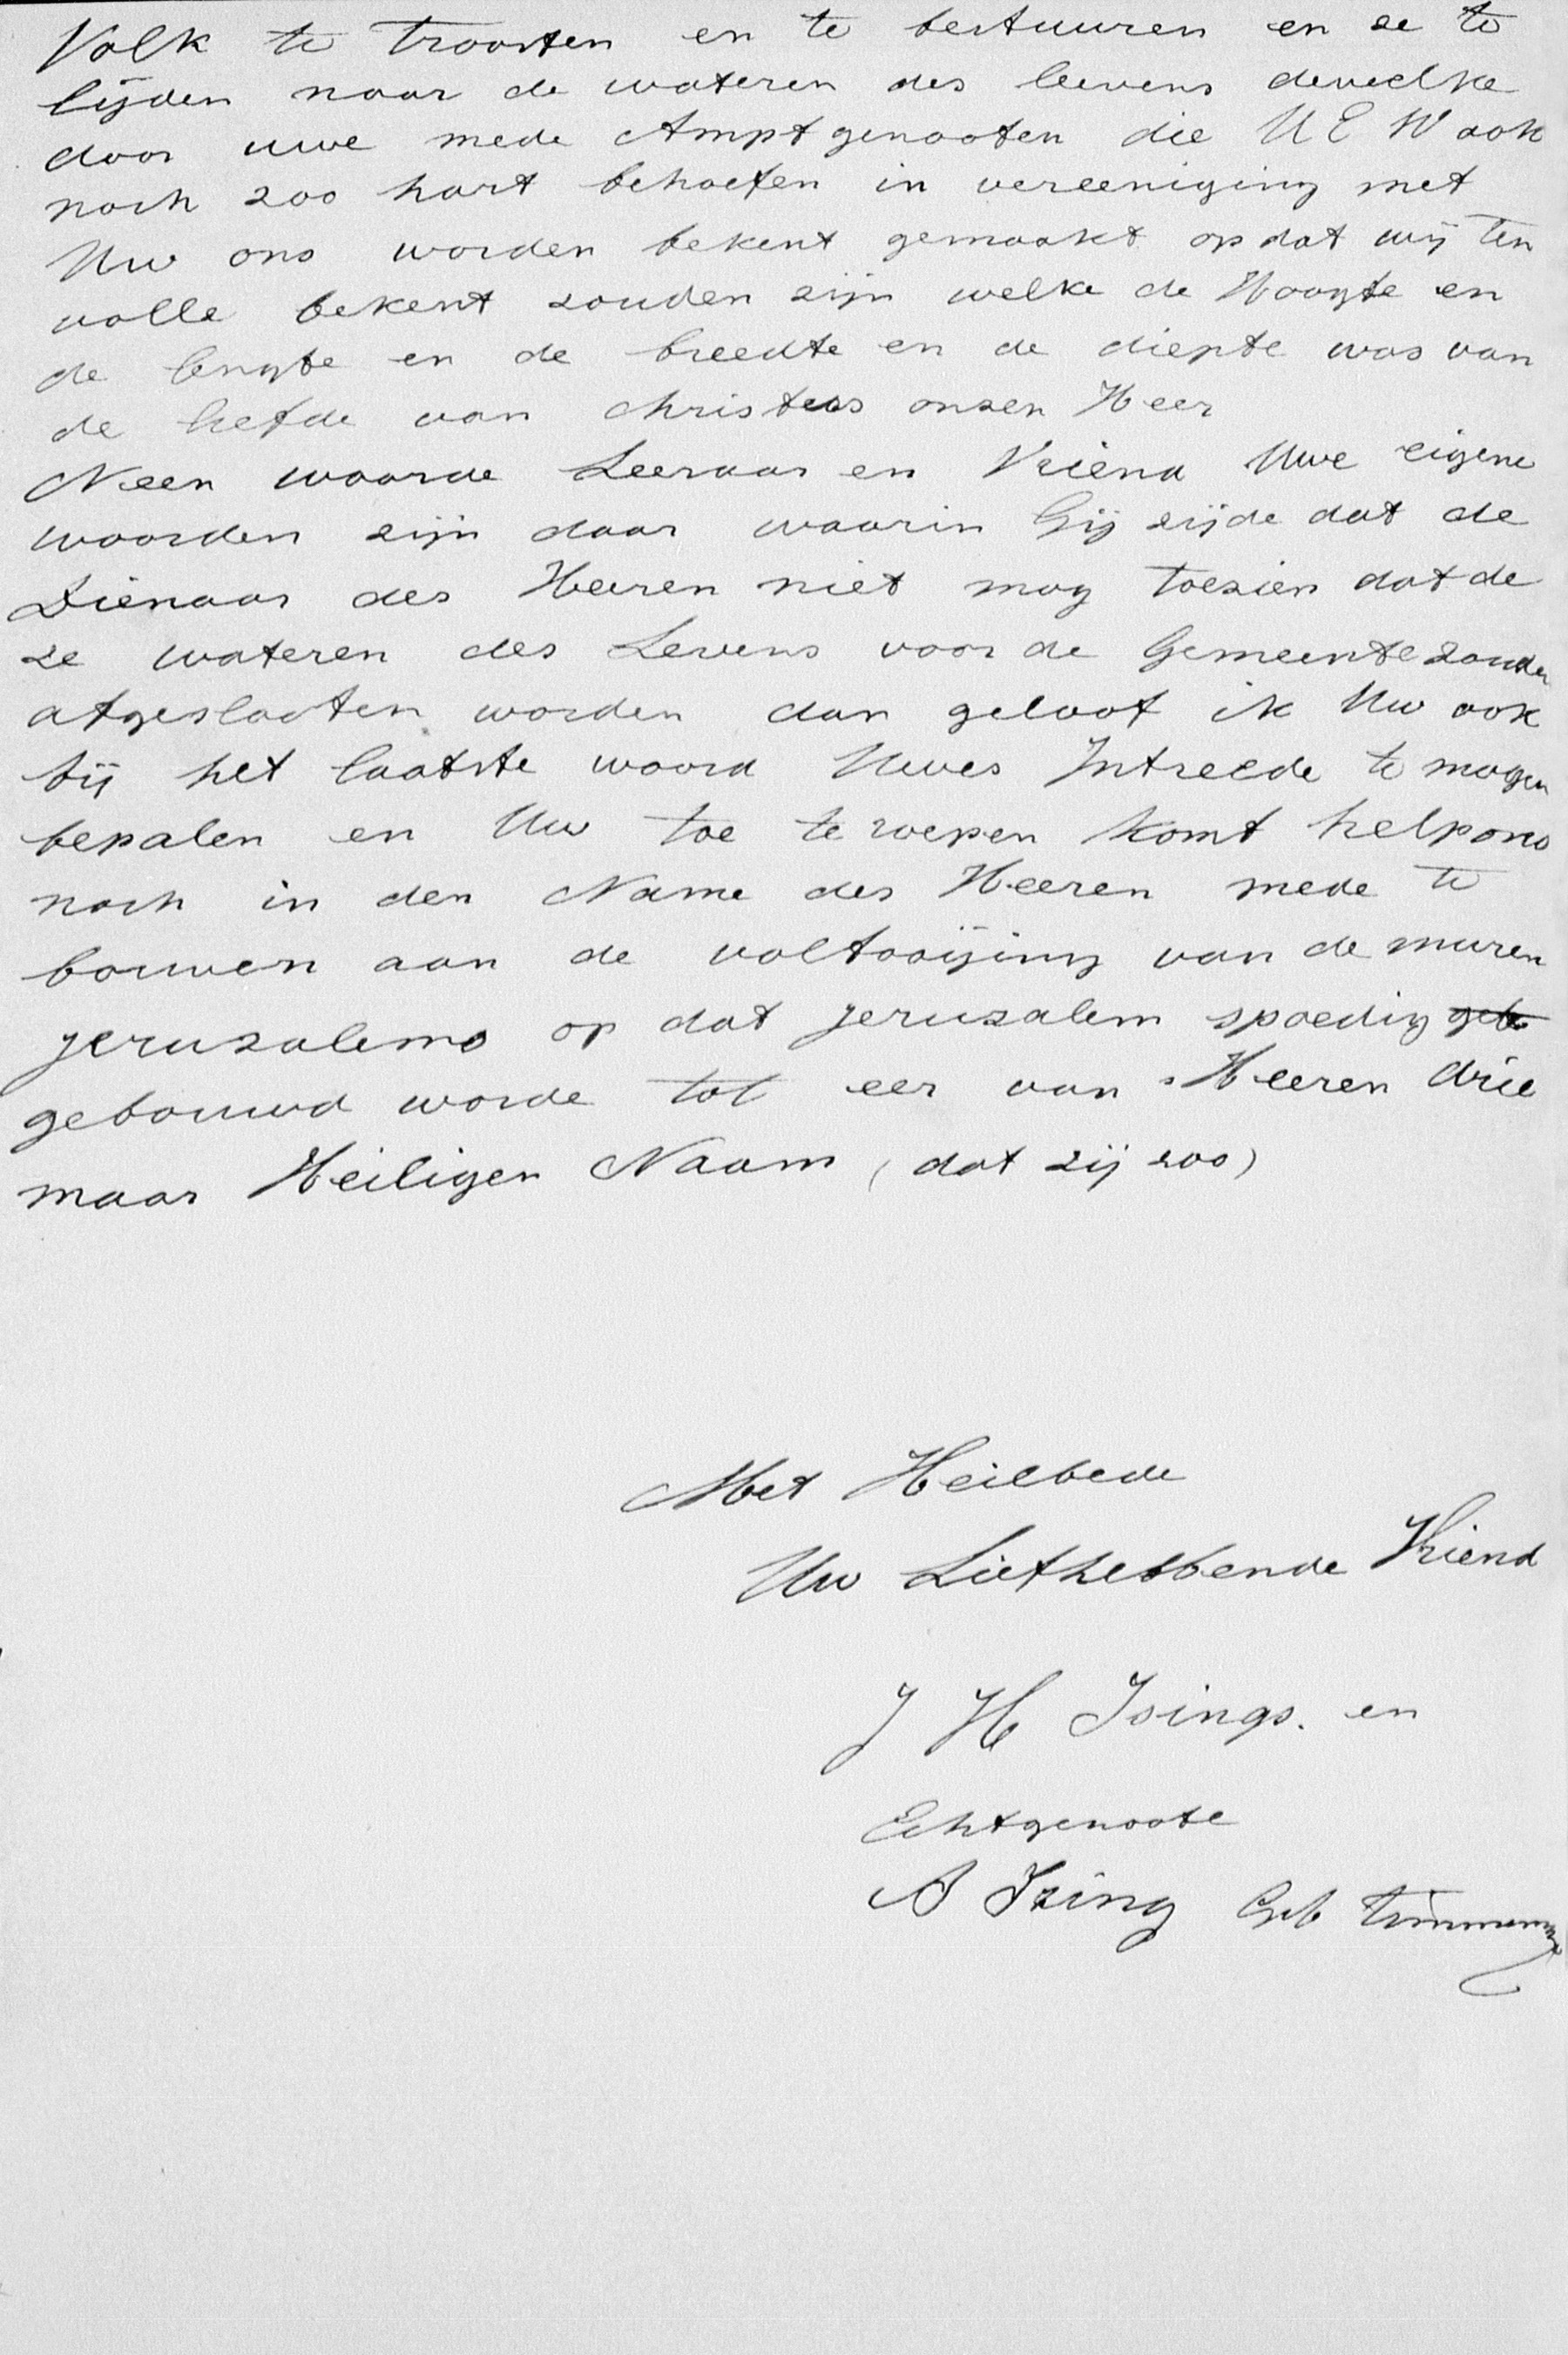 Volk te troosten en te bestuuren en ze te
lijden naar de wateren des levens dewelke
door uwe mede Amptgenooten die U E W ook
noch zoo hart behoefen in vereeniging met
Uw ons worden bekent gemaakt op dat wij ten
volle bekent zouden zijn welke de Hoogte en
de lengte en de breedte en de diepte was van
de liefde van christus onzen Heer
Neen waarde Leeraar en Vriend Uwe eigene
woorden zijn daar waarin Gij zijde dat de
Dienaar des Heeren niet mag toezien dat de
ze wateren des Levens voor de Gemeente zouden
afgeslooten worden dan geloof ik Uw ook
bij het laatste woord Uwes Intreede te mogen
bepalen en Uw toe te roepen komt help ons
noch in den Name des Heeren mede te
bouwen aan de voltooijing van de muren
jeruzalems op dat jeruzalem spoedig geb
gebouwd worde tot eer van s Heeren drie
maar Heiligen Naam (dat zij zoo)
Met Heilbede
Uw Liefhebbende Vriend
J H Isings. en
Echtgenoote
A Ising Geb